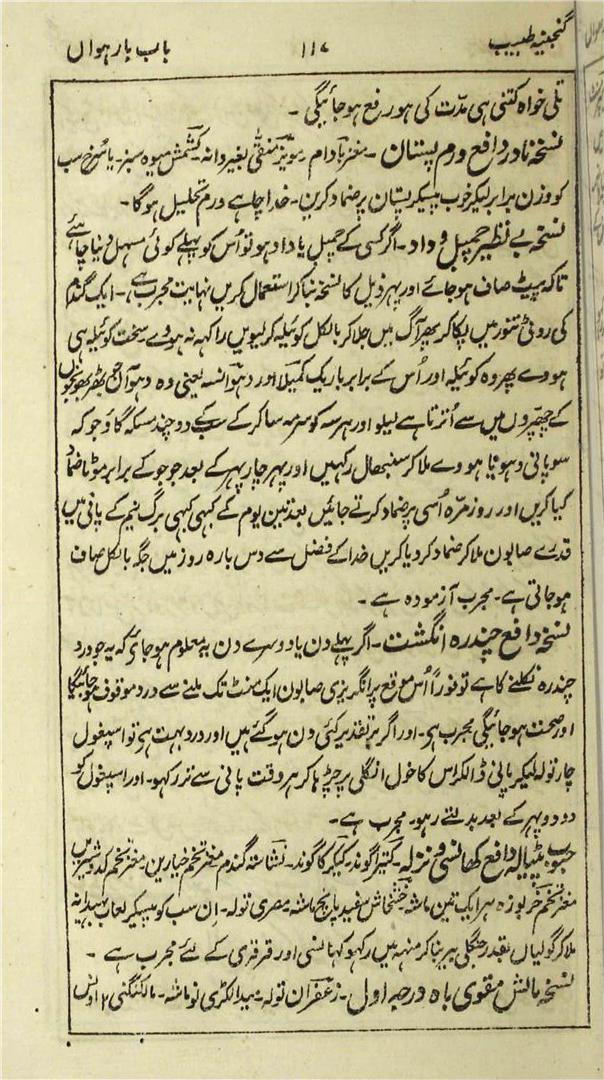 گنجینہ طبیب ۱۱۷ باب بارہواں
تلی خواہ کتنی ہی مدّت کی ہو رفع ہو جائیگی ۔
نسخہ نادر دافع ورم پستان ۔ مغز بادام ۔ مویز منقّٰی بغیر دانہ ۔ کشمش میوہ سبز ۔ یا سُرخ سب
کو وزن برابر لیکر خوب پیسکر پستان پر ضماد کریں ۔ خدا چاہے ورم تحلیل ہوگا ۔
نسخہ بے نظیر چمبل و داد ۔ اگر کسی کے چمبل یا داد ہو تو اُس کو پہلے کوئی مسہل دینا چاہئے
تاکہ پیٹ صاف ہو جائے اور پہر ذیل کا نسخہ بنا کر استعمال کریں نہایت مجرب ہے ۔ ایک گندم
کی روٹی تنور میں پکا کر پھر آگ میں جلا کر بالکل کوئیلہ کر لیویں راکہہ نہ ہووے سخت کوئیلہ ہی
ہووے پھر وہ کوئیلہ اور اُس کے برابر باریک کمیلا اور دہوانسہ یعنی وہ دہوآں جو بھڑبھونجوں
کے چھپّروں میں سے اُترتا ہے لیلو اور ہر سہ کو سرمہ سا کر کے سب کے دو چند مسکہ گاؤ جو کہ
سو پانی دہویا ہووے ملا کر سنبھال رکہیں اور پہر چار پہر کے بعد جو جو کے برابر موٹا ضماد
کیا کریں اور روزمرّہ اُسی پر ضماد کرتے جائیں بعد تین یوم کے کبھی کبھی برگ نیم کے پانی میں
قدرے صابون ملا کر ضماد کر دیا کریں خدا کے فضل سے دس بارہ روز میں جگہ بالکل صاف
ہو جاتی ہے ۔ مجرب آزمودہ ہے ۔
نسخہ دافع چندرہ انگشت ۔ اگر پہلے دن یا دوسرے دن یہ معلوم ہو جائے کہ یہ جو درد
چندرہ نکلنے کا ہے تو فوراً اُس موقع پر انگریزی صابون ایک منٹ تک ملنے سے درد موقوف ہو جائیگا
اور صحت ہو جائیگی مجرب ہے ۔ اور اگر بتقدیر کئی دن ہو گئے ہیں اور درد بہت ہے تو اسپغول
چار تولہ لیکر پانی ڈالکر اس کا خول انگلی پر چڑہا کر ہر وقت پانی سے تر رکہو ۔ اور اسپغول کو
دو دو پہر کے بعد بدلتے رہو ۔ مجرب ہے ۔
حبوب پٹیالہ دافع کھانسی و نزلہ ۔ کتیرا گوند ۔ کیکر کا گوند ۔ نشاستہ گندم مغز تخم خیارین ۔ مغز تخم کدو شیریں
مغز تخم خربوزہ ہر ایک تین ماشہ ۔ خشخاش سفید پانچ ماشہ مصری تولہ ۔ اِن سب کو پیسکر لعاب بہیدانہ
ملا کر گولیاں بقدر جنگلی بیر بنا کر منہہ میں رکہو کہانسی اور قرقری کے لئے مجرب ہے ۔
نسخہ مالش مقوی باہ درجہ اول ۔ زعفران تولہ ۔ بید الکڑی نو ماشہ ۔ مالکنگنی ۲ اونس